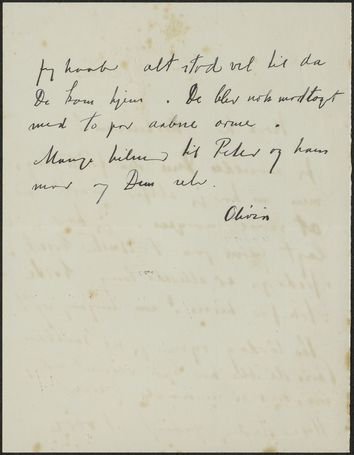 Jeg haaber alt stod vel til da
De kom hjem. De blev nok modtagt
med to par aabne arme.
Mange hilsner til Peter og hans
mor og Dem selv.
Olivia